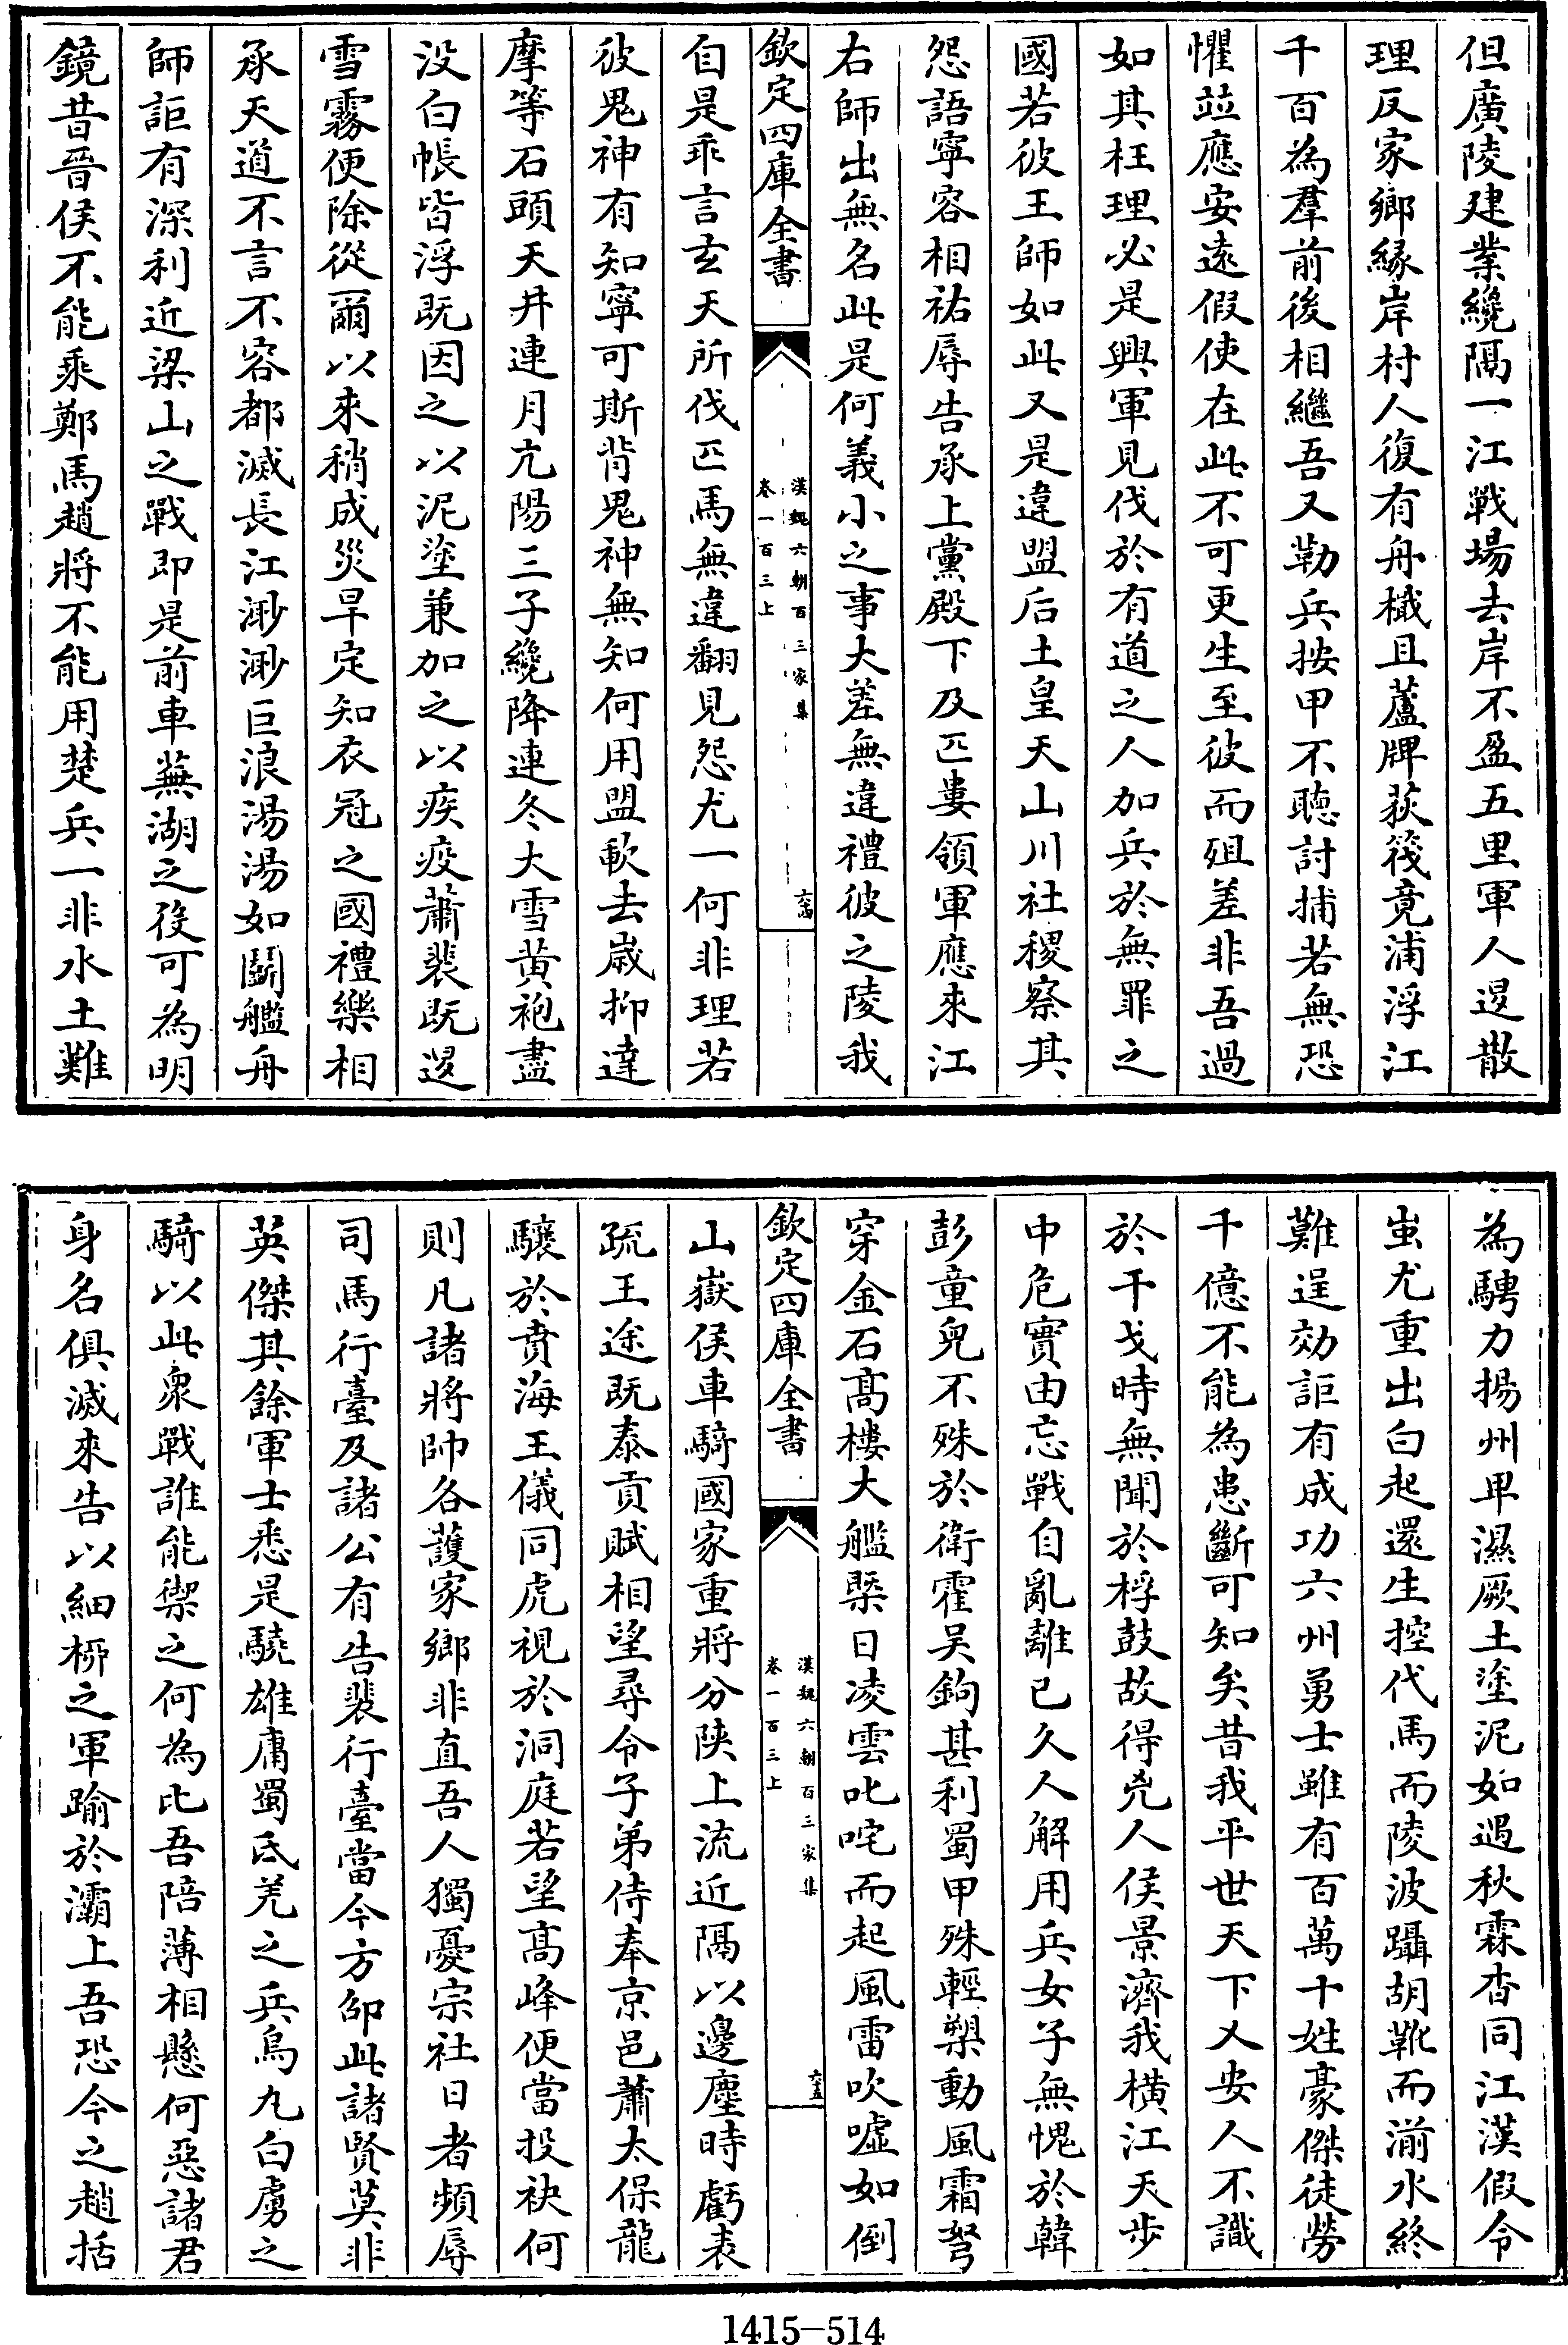 但廣陵建業纔隔一江戰場去岸不盈五里軍人退散
理反家鄉縁岸村人復有舟檝且蘆牌荻筏竟浦浮江
千百為羣前後相繼吾又勒兵按甲不聽討捕若無恐
懼並應安逺假使在此不可更生至彼而殂差非吾過
如其枉理必是興軍見伐於有道之人加兵於無罪之
國若彼王師如此又是違盟后土皇天山川社稷察其
怨語寧容相祐辱告承上黨殿下及匹婁領軍應來江
右師出無名此是何義小之事大差無違禮彼之陵我
欽定四庫全書
漢魏六朝百三家集
卷一百三上
六十四
自是乖言玄天所伐匹馬無違翻見怨尤一何非理若
彼鬼神有知寧可斯背鬼神無知何用盟歃去歲抑達
摩等石頭天井連月亢陽三子纔降連冬大雪黄袍盡
没白帳皆浮既因之以泥塗兼加之以疾疫蕭裴既退
雪霧便除從爾以來稍成災旱定知衣冠之國禮樂相
承天道不言不容都滅長江渺渺巨浪湯湯如鬭艦舟
師詎有深利近梁山之戰即是前車蕪湖之役可為明
鏡昔晉侯不能乘鄭馬趙將不能用楚兵一非水土難
為騁力揚州卑濕厥土塗泥如遇秋霖杳同江漢假令
蚩尤重出白起還生控代馬而陵波躡胡靴而湔水終
難逞効詎有成功六州勇士雖有百萬十姓豪傑徒勞
千億不能為患斷可知矣昔我平世天下乂安人不識
於干戈時無聞於桴鼓故得兇人侯景濟我横江天步
中危實由忘戰自亂離已久人解用兵女子無愧於韓
彭童兒不殊於衛霍吴鉤甚利蜀甲殊輕槊動風霜弩
穿金石髙樓大艦槩日凌雲叱咤而起風雷吹噓如倒
欽定四庫全書
漢魏六朝百三家集
卷一百三上
六十五
山嶽侯車騎國家重將分陝上流近隔以邊塵時虧表
疏王途既泰貢賦相望尋令子弟侍奉京邑蕭太保龍
驤於賁海王儀同虎視於洞庭若望髙峰便當投袂何
則凡諸將帥各護家鄉非直吾人獨憂宗社日者頻辱
司馬行臺及諸公有告裴行臺當今方邵此諸賢莫非
英傑其餘軍士悉是驍雄庸蜀氐羌之兵烏丸白虜之
騎以此衆戰誰能禦之何為比吾陪薄相懸何惡諸君
身名俱滅來告以細栁之軍踰於灞上吾恐今之趙括
1415-514